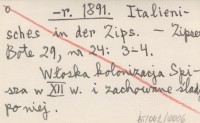 o -r. 1891. Italieni-
sches in der Zips. - Zipser
Bote 29, nr 24: 3-4.
Włoska kolonizacja Spi-
sza w XII w. i zachowane ślady
po niej.